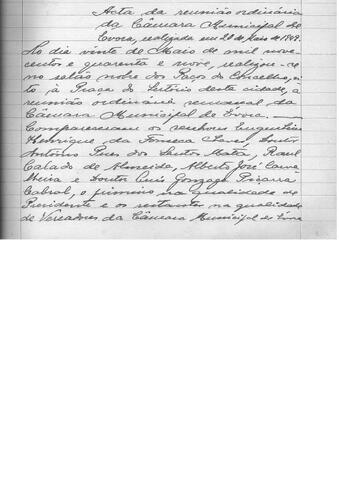 Acta da reunião ordinária
da Câmara Municipal de
Evora, realizada em 20 de Maio de 1949.
Ao dia vinte de Maio de mil nove-
centos e quarenta e nove, realizou-se
no salão nobre dos Paços do Concelho, si-
to à Praça do Sertório desta cidade, a
reunião ordinária semanal da
Câmara Municipal de Evora.
Compareceram os senhores Engenheiro
Henrique da Fonseca Chaves, Doutor
António Pires dos Santos Mata, Raul
de Almeida, Alberto José
e Doutor Luis Gonzaga Piçarra
Cabral, o primeiro na qualidade de
Presidente e os restantes na qualidade
de Vereadores da Câmara Municipal de Evora